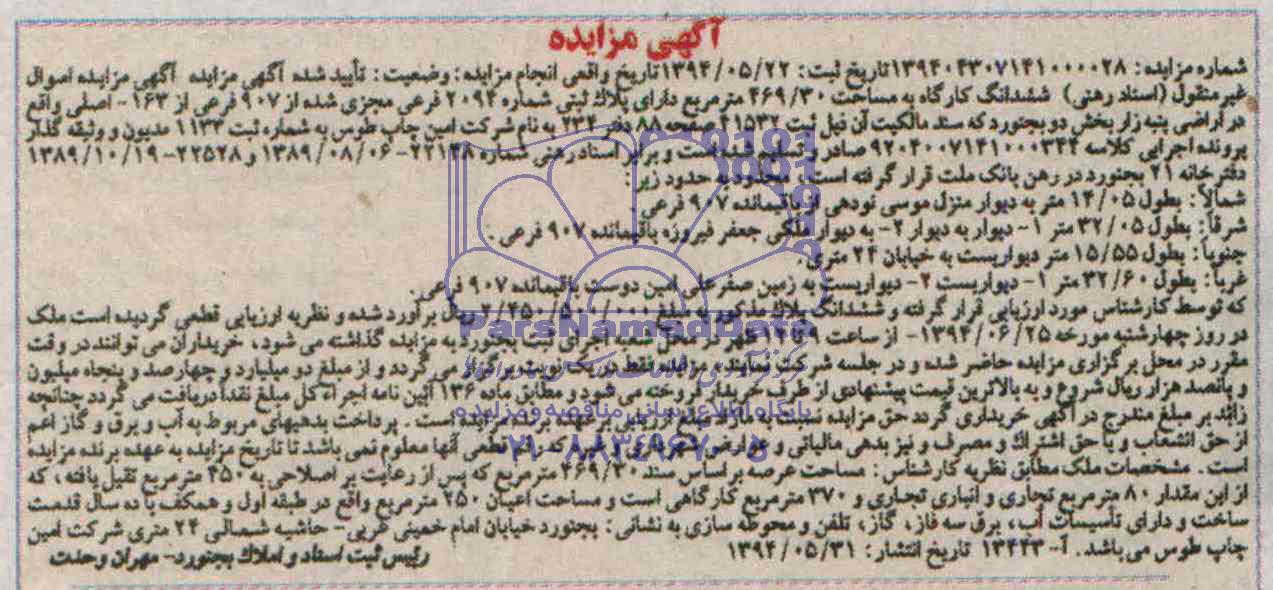 آگهی مزایده
شماره مزایده: ۱۳۹۴۰۴۳۰۷۱۴۱۰۰۰۰۲۸ تاریخ ثبت: ۱۳۹۴/۰۵/۲۲ تاریخ واقعی انجام مزایده: وضعیت: تأیید شده آگهی مزایده آگهی مزایده اموال
غیر منقول (اسناد رهنی) ششدانگ کارگاه به مساحت ۴۶۹/۳۰ مترمربع دارای پلاک ثبتی شماره ۲۰۹۲ فرعی مجزی شده از ۹۰۷ فرعی از ۱۶۳- اصلی واقع
در اراضی پنبه زار بخش دو بجنورد که سند مالکیت آن ذیل ثبت ۴۱۵۳۲ صفحه ۸۸ دفتر ۲۳۴ به نام شرکت امین چاپ طوس به شماره ثبت ۱۱۳۳ مدیون و وثیقه گذار
پرونده اجرایی کلاسه ۹۲۰۴۰۰۷۱۴۱۰۰۰۳۴۴ صادر و تسلیم شده است و برابر اسناد رهنی شماره ۲۲۱۴۸- ۱۳۸۹/۰۸/۰۶ و ۲۲۵۲۸- ۱۳۸۹/۱۰/۱۹
دفترخانه ۲۱ بجنورد در رهن بانک ملت قرار گرفته است، محدود به حدود زیر:
شمالاً: بطول ۱۴/۰۵ متر به دیوار منزل موسی نودهی از باقیمانده ۹۰۷ فرعی.
شرقاً: بطول ۳۲/۰۵ متر ۱- دیوار به دیوار ۲- به دیوار ملکی جعفر فیروزه باقیمانده ۹۰۷ فرعی.
جنوباً: بطول ۱۵/۵۵ متر دیواریست به خیابان ۲۴ متری.
غرباً: بطول ۳۲/۶۰ متر ۱- دیواریست ۲- دیواریست به زمین صفرعلی امین دوست باقیمانده ۹۰۷ فرعی.
که توسط کارشناس مورد ارزیابی قرار گرفته و ششدانگ پلاک مذکور به مبلغ ۲/۴۵۰/۵۰۰/۰۰۰ ریال برآورد شده و نظریه ارزیابی قطعی گردیده است ملک
در روز چهارشنبه مورخه ۱۳۹۴/۰۶/۲۵- از ساعت ۹ تا ۱۲ ظهر در محل شعبه اجرای ثبت بجنورد به مزایده گذاشته می شود، خریداران می توانند در وقت
مقرر در محل برگزاری مزایده حاضر شده و در جلسه شرکت نمایند، مزایده فقط در یک نوبت برگزار می گردد و از مبلغ دو میلیارد و چهارصد و پنجاه میلیون
و پانصد هزار ریال شروع و به بالاترین قیمت پیشنهادی از طرف خریدار فروخته می شود و مطابق ماده ۱۳۶ آئین نامه اجراء کل مبلغ نقداً دریافت می گردد چنانچه
زائد بر مبلغ مندرج در آگهی خریداری گردد حق مزایده نسبت به مازاد مبلغ ارزیابی بر عهده برنده مزایده است. پرداخت بدهیهای مربوط به آب و برق و گاز اعم
از حق انشعاب و یا حق اشتراک و مصرف و نیز بدهی مالیاتی و عوارض شهرداری و غیره که رقم قطعی آنها معلوم نمی باشد تا تاریخ مزایده به عهده برنده مزایده
است. مشخصات ملک مطابق نظریه کارشناس: مساحت عرصه بر اساس سند ۴۶۹/۳۰ مترمربع که پس از رعایت بر اصلاحی به ۴۵۰ مترمربع تقلیل یافته، که
از این مقدار ۸۰ مترمربع تجاری و انباری تجاری و ۳۷۰ مترمربع کارگاهی است و مساحت اعیان ۲۵۰ مترمربع واقع در طبقه اول و همکف با ده سال قدمت
ساخت و دارای تأسیسات آب، برق سه فاز، گاز، تلفن و محوطه سازی به نشانی: بجنورد خیابان امام خمینی غربی- حاشیه شمالی ۲۴ متری شرکت امین
چاپ طوس می باشد. آ- ۱۳۴۴۳ تاریخ انتشار: ۱۳۹۴/۰۵/۳۱
رئیس ثبت اسناد و املاک بجنورد- مهران وحدت
ParsNamadData
پایگاه اطلاع رسانی مناقصه و مزایده
۰۲۱-۸۸۳۴۹۶۷۰-۵